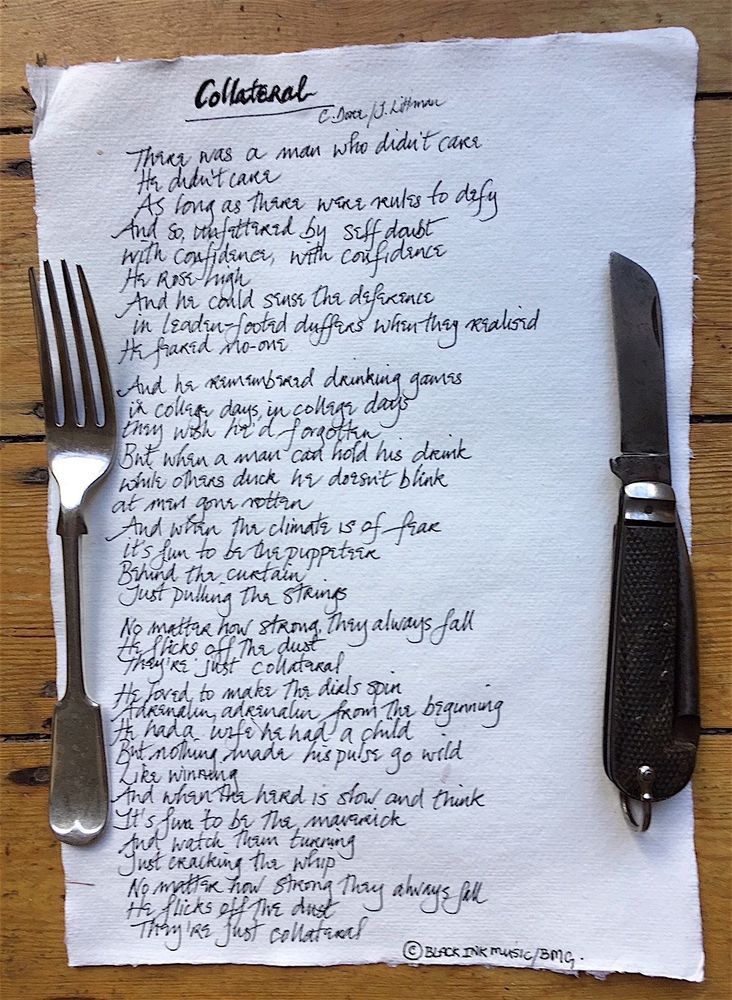 Collateral
C. Dore/J. Littman
There was a man who didn't care
He didn't care
As long as there were rules to defy
And so, unfettered by self doubt
with confidence, with confidence
He rose high
And he could sense the deference
in leaden-footed duffers when they realised
He feared no-one
And he remembered drinking games
in college days, in college days
they wish he'd forgotten
But when a man can hold his drink
while others duck he doesn't blink
at men gone rotten
And when the climate is of fear
It's fun to be the puppeteer
Behind the curtain
Just pulling the strings
No matter how strong, they always fall
He flicks off the dust
They're just collateral
He loved to make the dials spin
Adrenalin, adrenalin from the beginning
He had a wife he had a child
But nothing made his pulse go wild
Like winning
And when the herd is slow and think
It's fun to be the maverick
And watch them turning
Just cracking the whip
No matter how strong they always fall
He flicks off the dust
They're just collateral
© BLACK INK MUSIC/BMG.